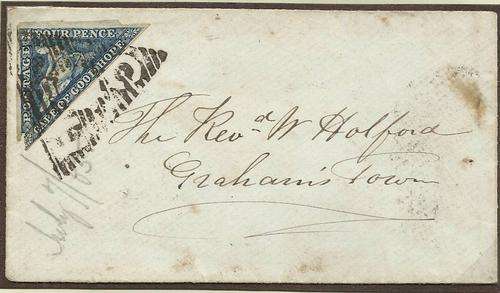 POSTAGE
FOUR PENCE
CAPE OF GOOD HOPE
The Rev.d W Holford
Graham's Town
July 7/63